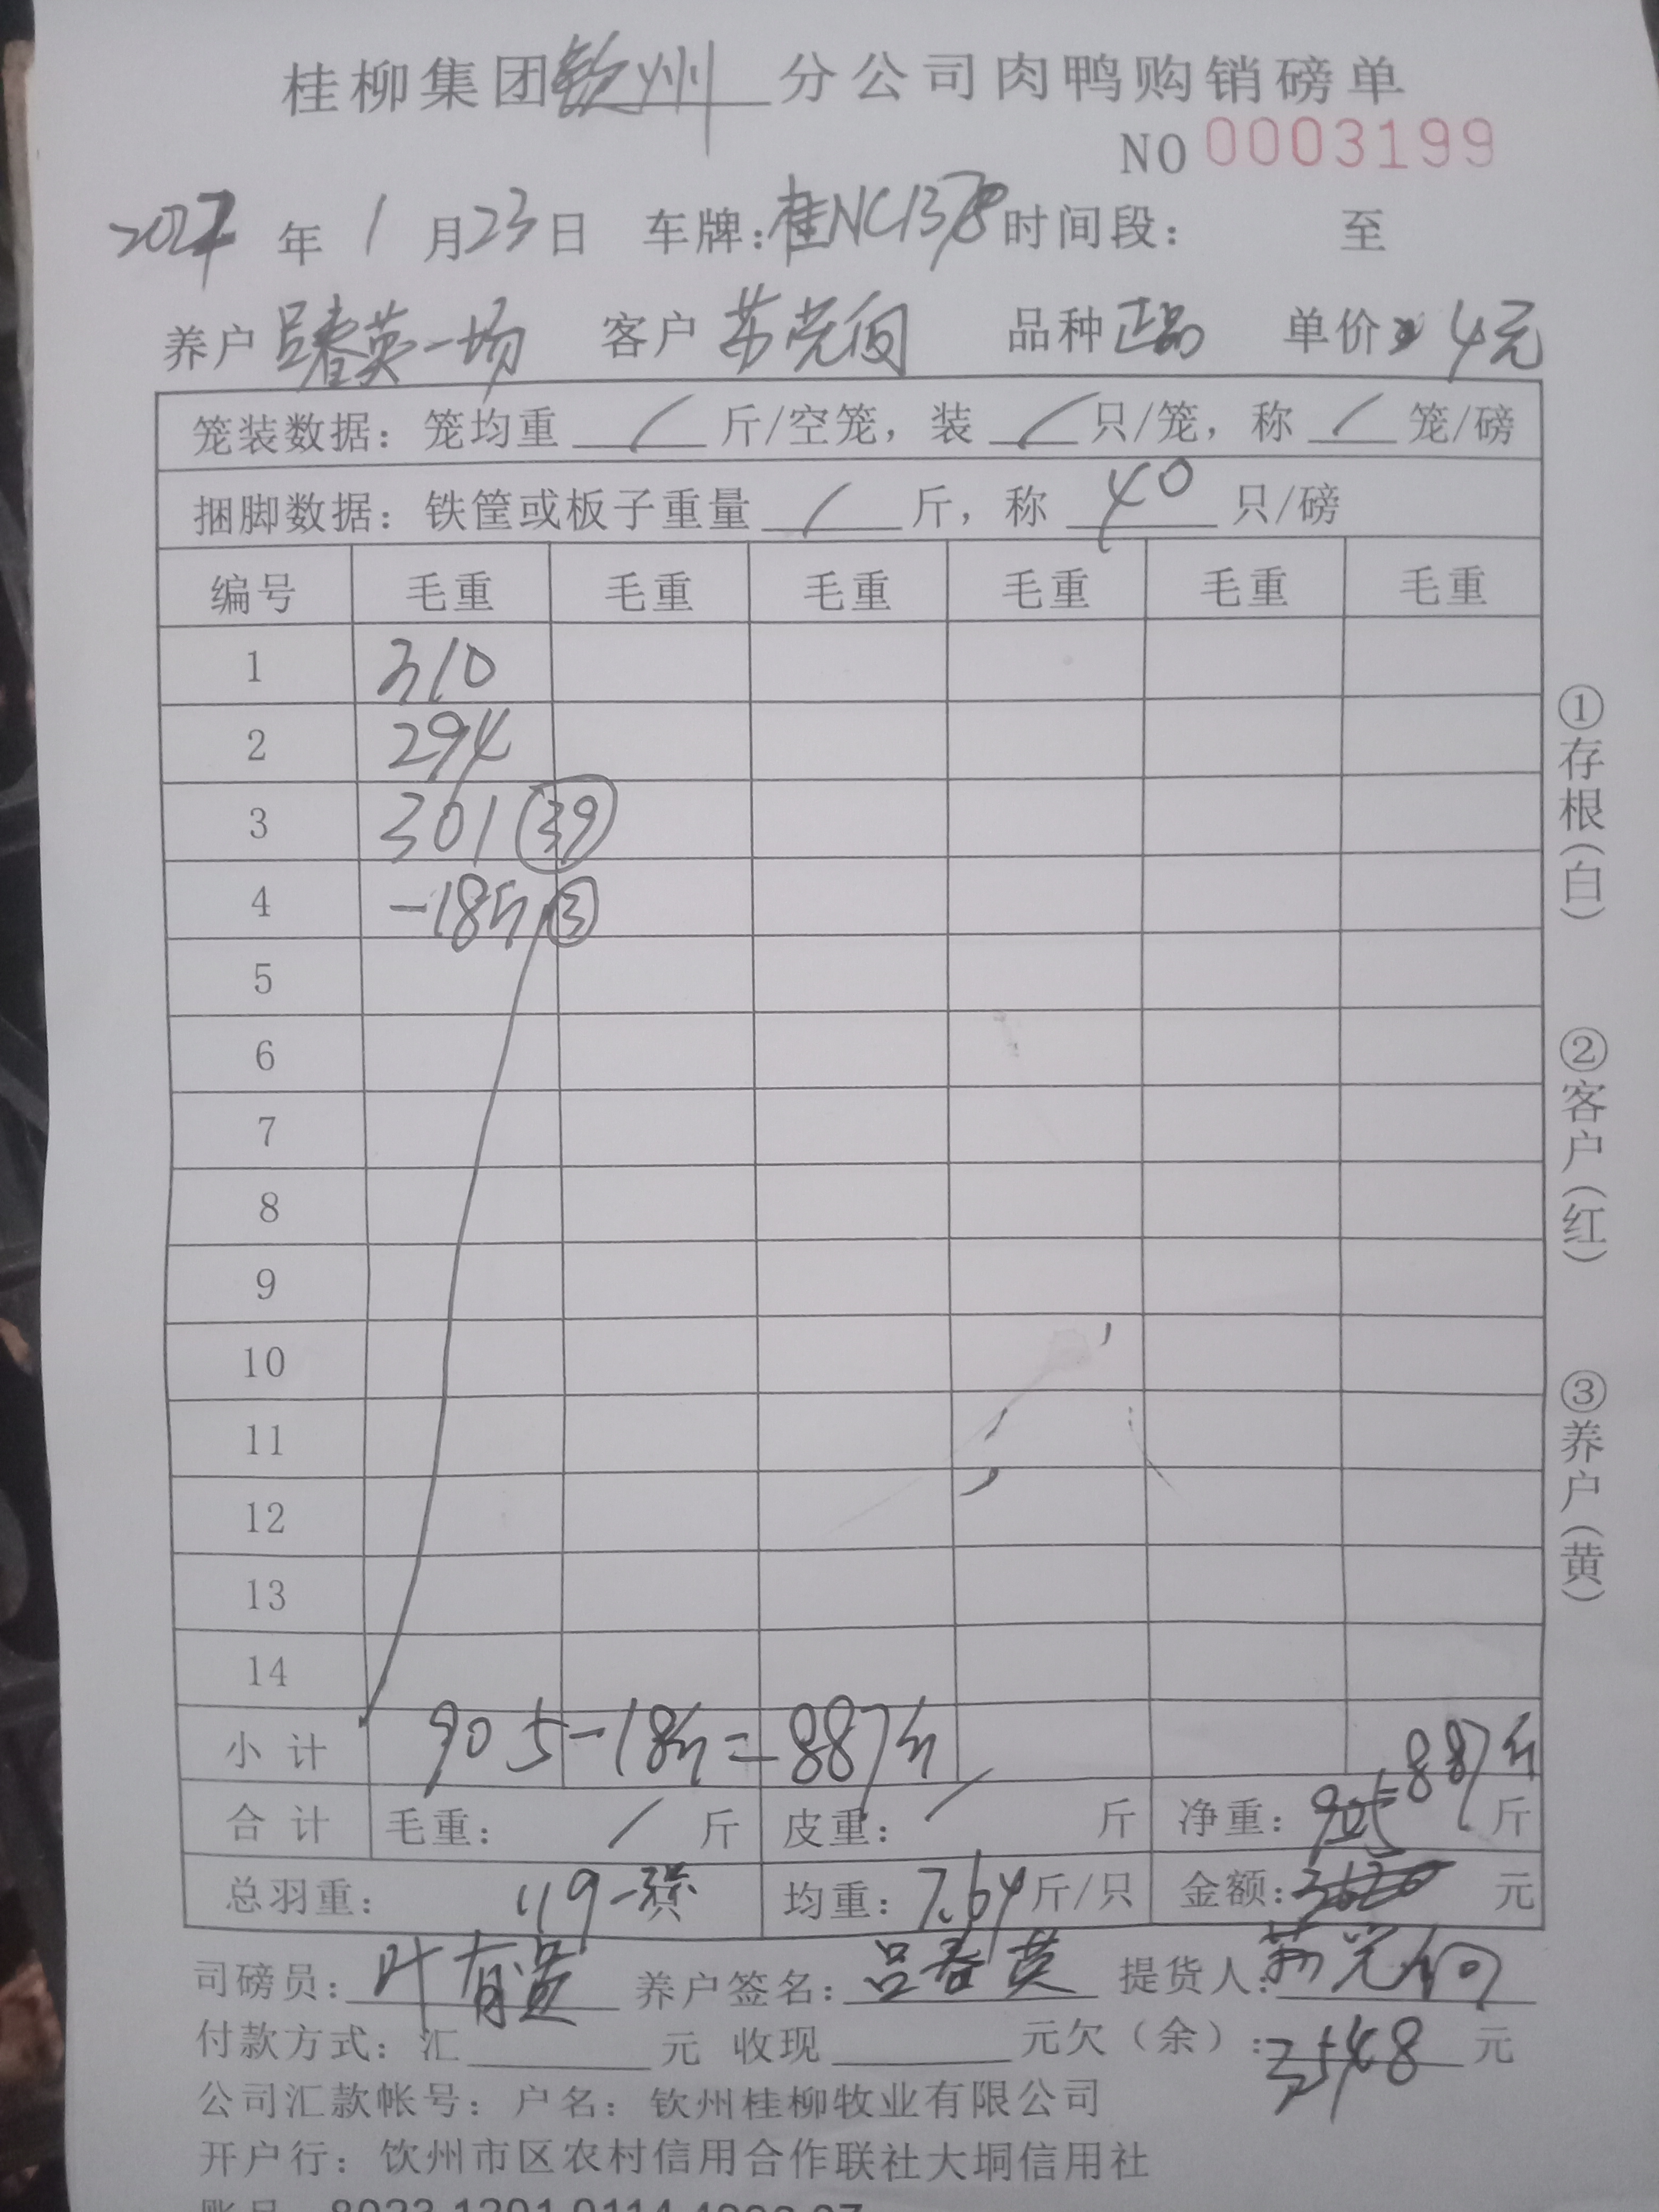 桂柳集团钦州分公司肉鸭购销磅单
NO 0003199
年 1月23日 车牌:桂NC1378 时间段: 至
养户 吕春英一场 客户 苏党向 品种 正品 单价 4元
笼装数据: 笼均重 / 斤/空笼, 装 / 只/笼, 称 / 笼/磅
捆脚数据: 铁筐或板子重量 / 斤, 称 40 只/磅
编号 毛重 毛重 毛重 毛重 毛重 毛重
1 310
2 294
3 301 (39)
4 -18斤 (3)
5
6
7
8
9
10
11
12
13
14
小计 905-18斤=887斤
合计 毛重: / 斤 皮重: / 斤 净重: 887斤 斤
总羽重: 119 均重: 7.64 斤/只 金额: 3620 元
司磅员: 叶有贵 养户签名: 吕春英 提货人: 苏党向
付款方式: 汇 元 收现 元欠(余): 3548 元
公司汇款帐号: 户名: 钦州桂柳牧业有限公司
开户行: 钦州市区农村信用合作联社大垌信用社
①存根(白)
②客户(红)
③养户(黄)